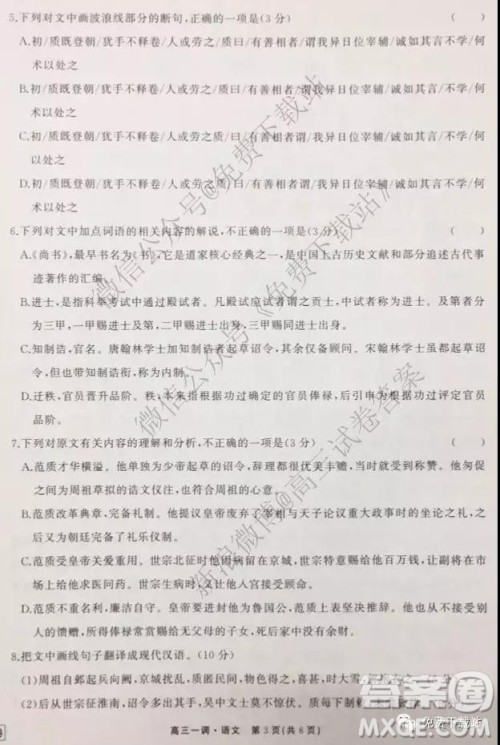 5.下列对文中画波浪线部分的断句,正确的一项是(3分) ( )
A.初/质既登朝/犹手不释卷/人或劳之/质曰/有善相者/谓我异日位宰辅/诚如其言不学/何
术以处之
B.初/质既登朝/犹手不释卷/人或劳之/质曰/有善相者/谓我异日位宰辅/诚如其言/不学
何术以处之
C.初/质既登朝/犹手不释卷/人或劳之/质曰/有善相者/谓我异日位宰辅/诚如其言/不学/
何以处之
D.初/质既登朝/犹手不释卷/人或劳之/质曰/有善相者/谓我异日位宰辅/诚如其言不学/何
术以处之
6.下列对文中加点词语的相关内容的解说,不正确的一项是(3分) ( )
A.《尚书》,最早书名为《书》,它是道家核心经典之一,是中国上古历史文献和部分追述古代事
迹著作的汇编。
B.进士,是指科举考试中通过殿试者。凡殿试应者谓之贡士,中式者称为进士。进士及第分
为三甲,一甲赐进士及第,二甲赐进士出身,三甲赐同进士出身。
C.知制诰,官名。唐翰林学士加知制诰者起草诏令,其余仅备顾问。宋翰林学士亦加知制诰
官衔,起草诏令。
D.迁秩,官员晋升品阶。秩,本来指根据功过确定的官员俸禄,可以引申为官员的品阶。
7.下列对原文有关内容的理解和分析,不正确的一项是(3分) ( )
A.范质才华横溢。他单独为少帝起草的诏令,辞理都很优美丰赡,当时就受到称赞。他后来
为周祖草拟的诰文仪注,也得到周祖的肯定。
B.范质改革典章,完备礼制。他任宰相的时候废弃了宰相与天子议论重大政事时的坐论之
礼,后又奉太祖之命完备了朝廷的礼乐仪制。
C.范质受皇帝关爱重用。世宗北征时他因病留在京城,世宗特意赐给他百万钱,让他在京城
延医治病;又赐钱给他夫人,让她给范质求医问药。世宗死前,又让他入宫接受顾命。
D.范质不重名利,廉洁自守。皇帝要进封他为鲁国公,范质奉上表章坚决推辞。他任相后不
接受四方的馈赠,所得俸禄常常赏赐给无父母的子女,死时家中没有余财。
8.把文中画线句子翻译成现代汉语。(10分)
(1)周祖自邺起兵向阙,京城扰乱,质匿民间,物色得之,喜甚,时大雪,解袍衣之。
(2)周广顺初,其兄晏卒于京师,游士多以文干典领,吴中文士莫不惊伏。
高三一调·语文 第3页(共8页)
微信公众号@免费下载站
微信公众号《免费下载站》
新浪微博@高三试卷答案
免费下载站